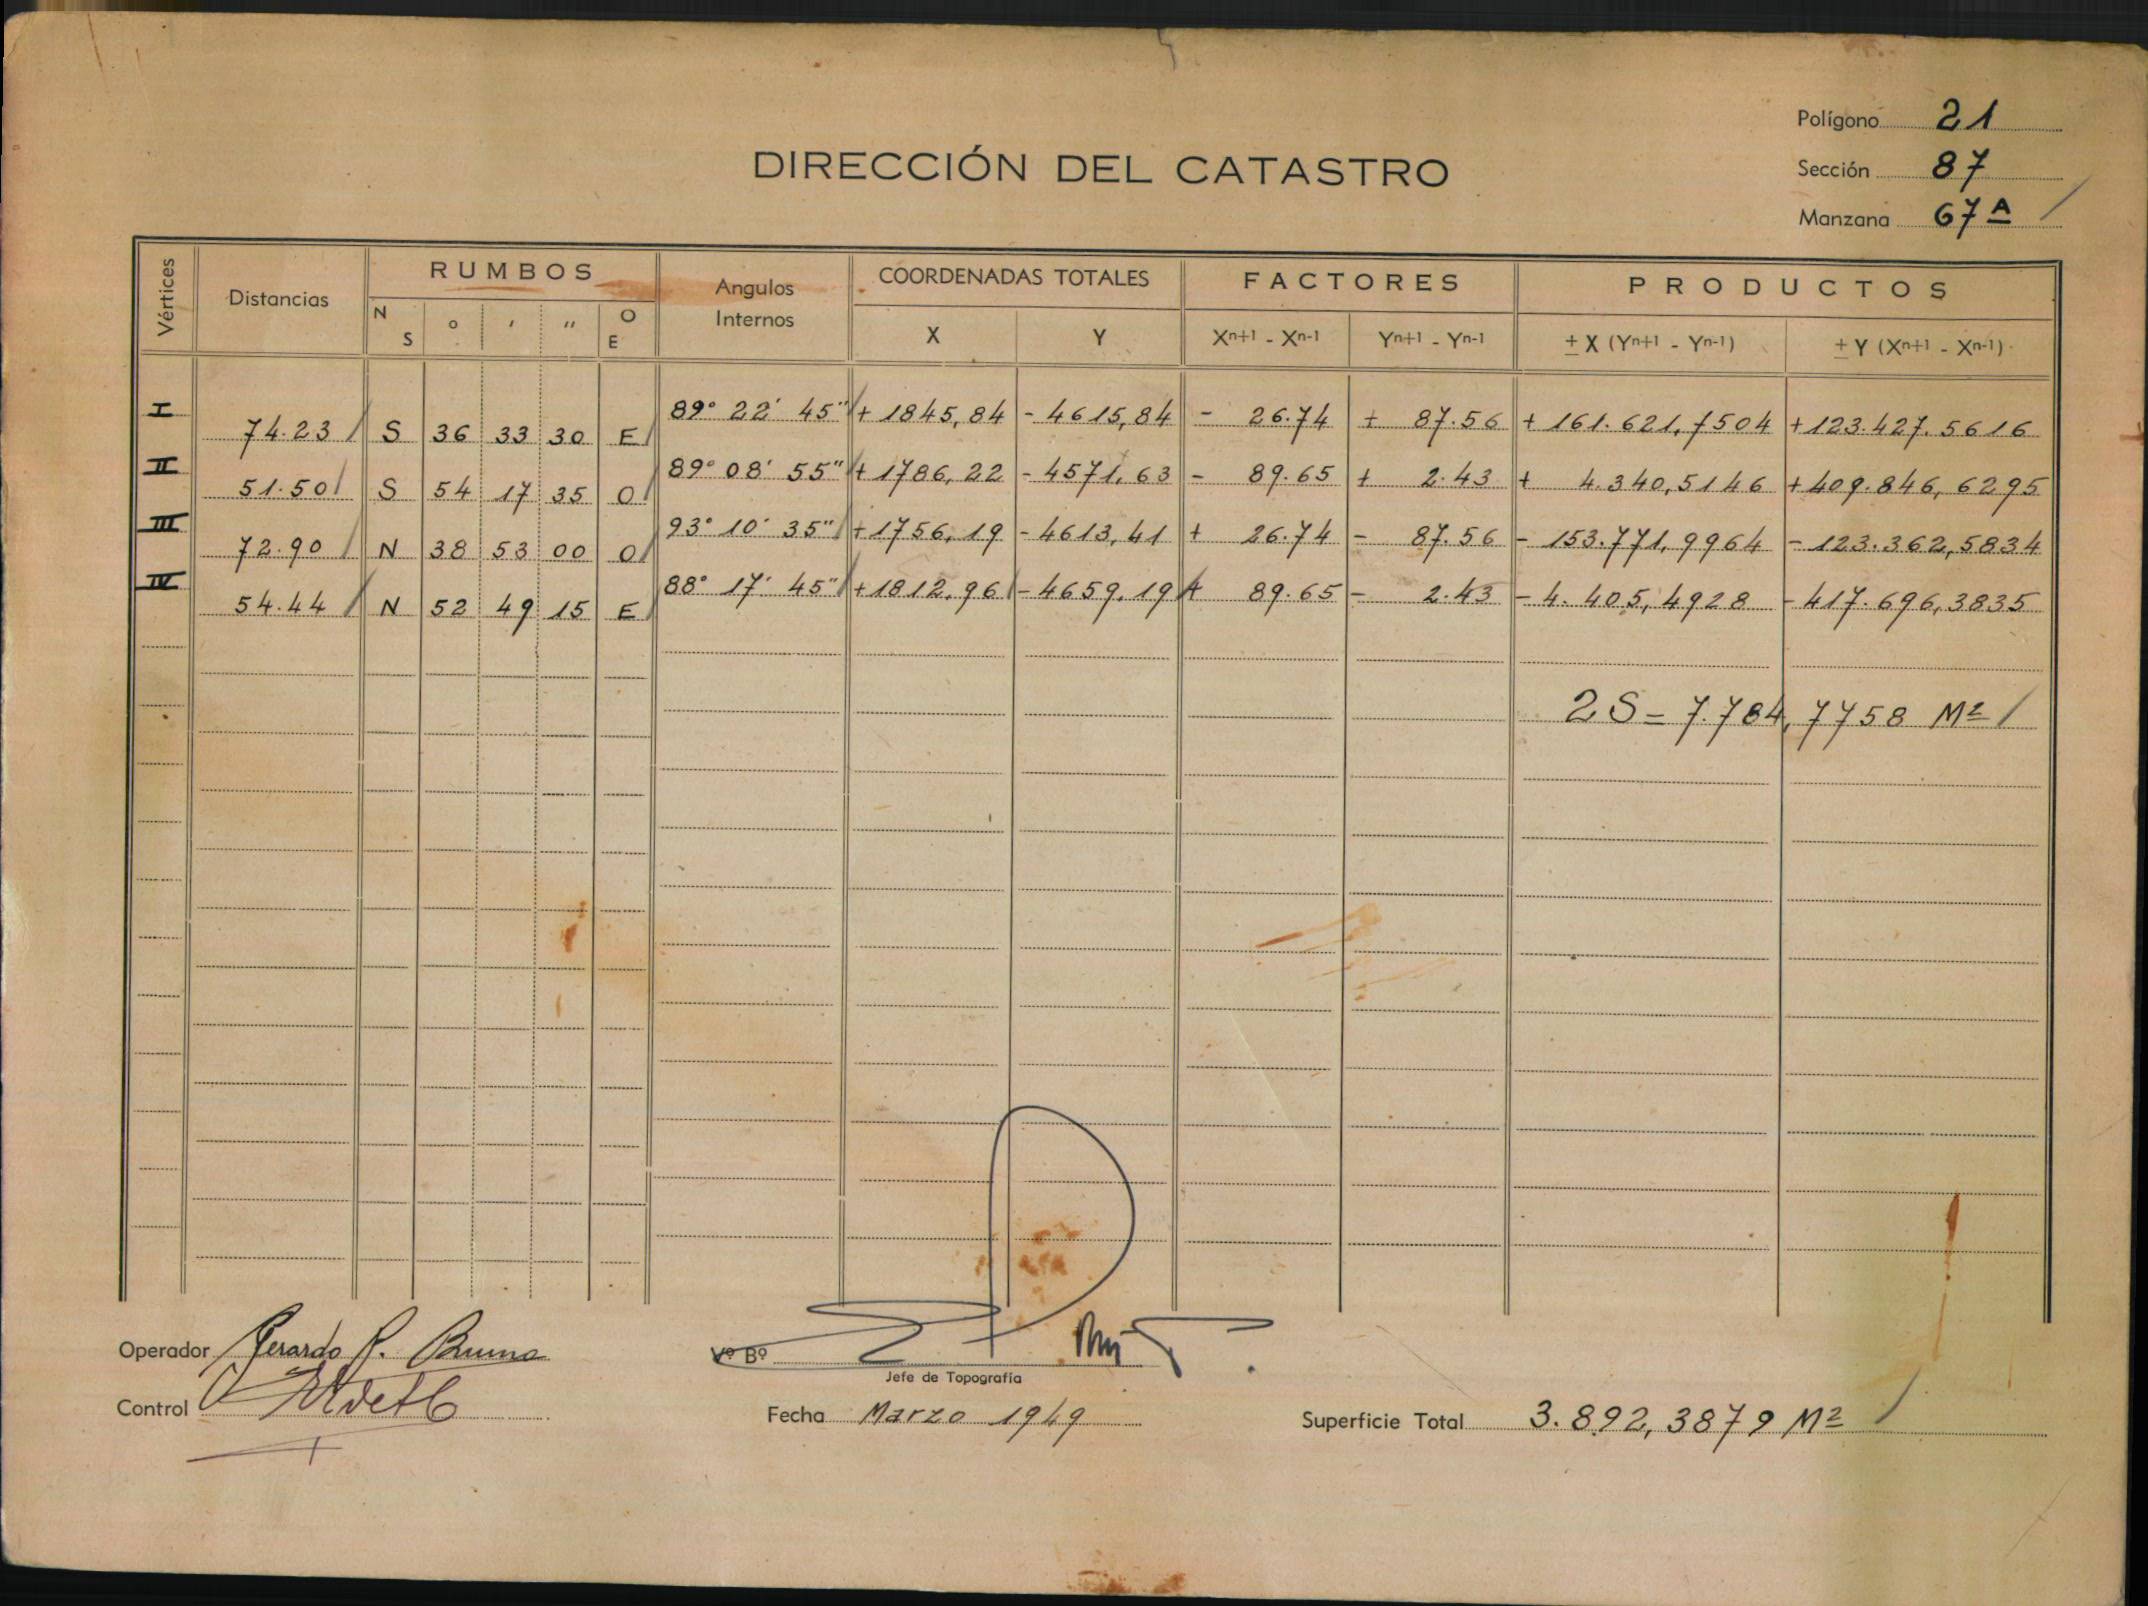 Polígono 21
DIRECCIÓN DEL CATASTRO
Sección 87
Manzana 67 A
Vértices Distancias RUMBOS Angulos Internos COORDENADAS TOTALES FACTORES PRODUCTOS
N S ° ' '' O E X Y Xn+1 - Xn-1 Yn+1 - Yn-1 ± X (Yn+1 - Yn-1) ± Y (Xn+1 - Xn-1)
I 74.23 S 36 33 30 E 89° 22' 45" + 1845,84 - 4615,84 - 26.74 + 87.56 + 161.621,7504 + 123.427.5616
II 51.50 S 54 17 35 O 89° 08' 55" + 1786,22 - 4571,63 - 89.65 + 2.43 + 4.340,5146 + 409.846,6295
III 72.90 N 38 53 00 O 93° 10' 35" + 1756,19 - 4613,41 + 26.74 - 87.56 - 153.771,9964 - 123.362,5834
IV 54.44 N 52 49 15 E 88° 17' 45" + 1812,96 - 4659,19 + 89.65 - 2.43 - 4.405,4928 - 417.696,3835
2S = 7.784,7758 M2
Operador Gerardo P. Bruno
Vº Bº
Jefe de Topografía
Control
Fecha Marzo 1949
Superficie Total 3.892,3879 M2